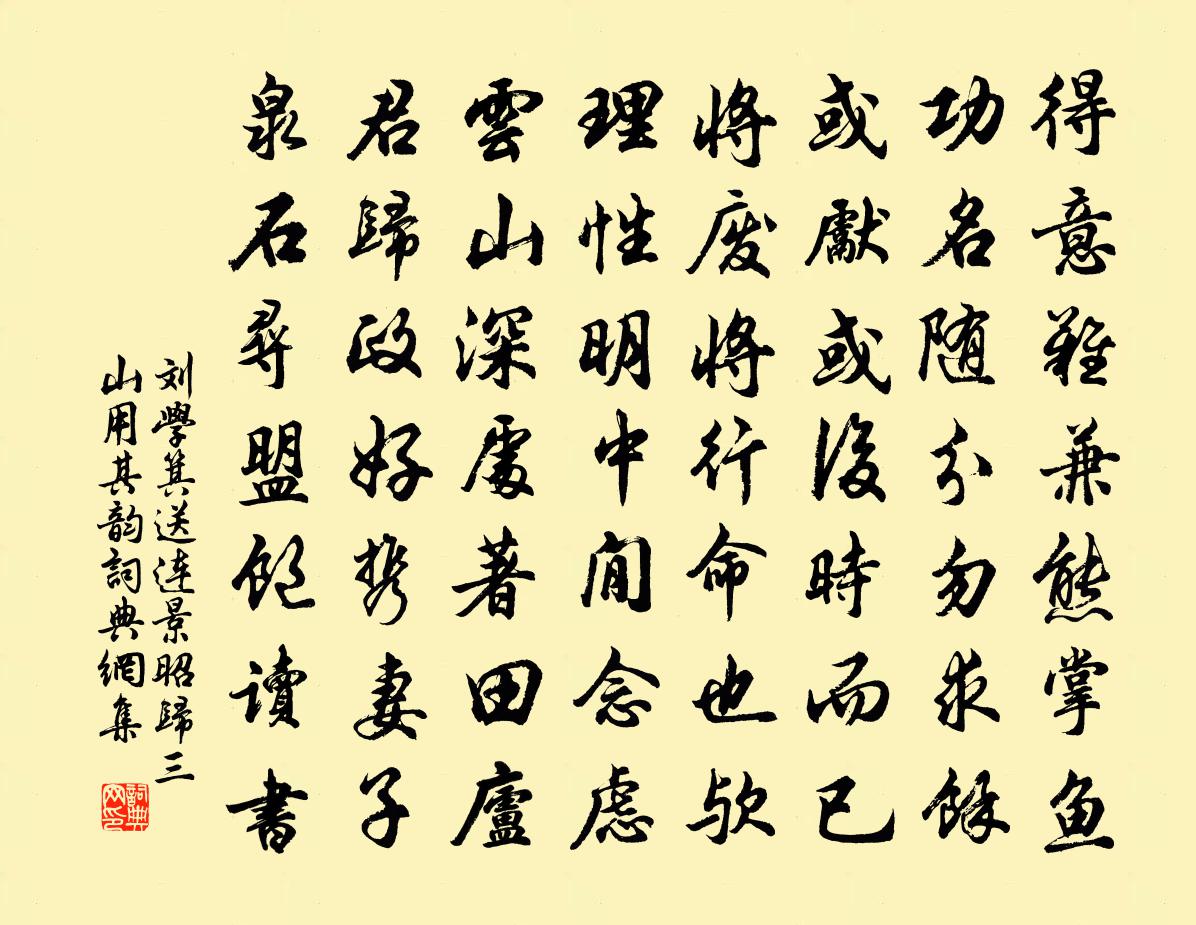 得意難兼熊掌魚
功名随分勿求餘
或獻或後時而已
將废將行命也欤
理性明中閒念慮
雲山深處著田廬
君歸政好携妻子
泉石尋盟飽讀書
刘學箕送連景昭歸三
山用其韵詞典網集
詞典網印